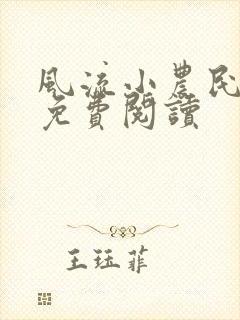 風流小農民
免費閱讀
王珏菲